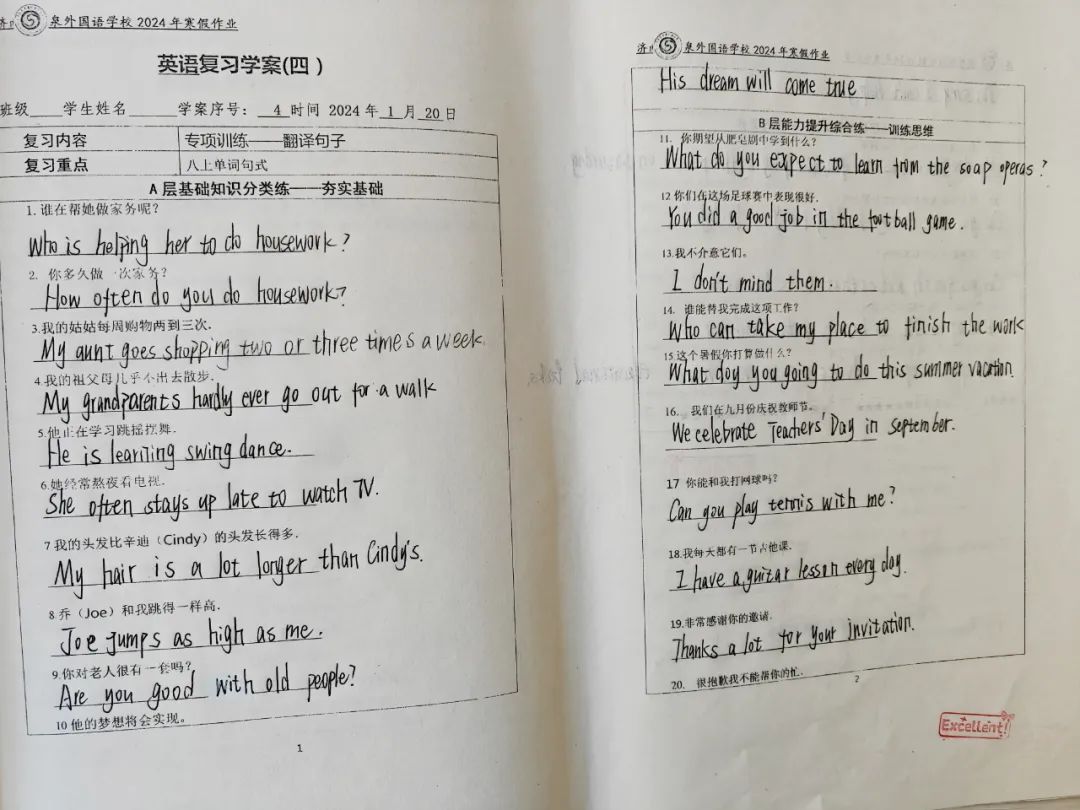 泉外国语学校 2024 年寒假作业
英语复习学案(四)
班级 学生姓名 学案序号: 4 时间 2024 年 1 月 20 日
复习内容 专项训练——翻译句子
复习重点 八上单词句式
A 层基础知识分类练——夯实基础
1. 谁在帮她做家务呢?
Who is helping her to do housework?
2. 你多久做一次家务?
How often do you do housework?
3.我的姑姑每周购物两到三次.
My aunt goes shopping two or three times a week.
4.我的祖父母几乎不出去散步.
My grandparents hardly ever go out for a walk
5.他正在学习跳摇摆舞.
He is learning swing dance.
6.她经常熬夜看电视.
She often stays up late to watch TV.
7 我的头发比辛迪(Cindy)的头发长得多.
My hair is a lot longer than Cindy's.
8 乔(Joe)和我跳得一样高.
Joe jumps as high as me.
9.你对老人很有一套吗?
Are you good with old people?
10 他的梦想将会实现。
1
济 泉外国语学校 2024 年寒假作业
His dream will come true
B 层能力提升综合练——训练思维
11. 你期望从肥皂剧中学到什么?
What do you expect to learn from the soap operas?
12 你们在这场足球赛中表现很好.
You did a good job in the football game.
13.我不介意它们。
I don't mind them.
14. 谁能替我完成这项工作?
Who can take my place to finish the work
15.这个暑假你打算做什么?
What doy you going to do this summer vacation.
16. 我们在九月份庆祝教师节。
We celebrate Teachers' Day in September.
17 你能和我打网球吗?
Can you play tennis with me?
18.我每天都有一节吉他课.
I have a guitar lesson every day.
19.非常感谢你的邀请.
Thanks a lot for your invitation.
20. 很抱歉我不能帮你的忙.
2
Excellent!